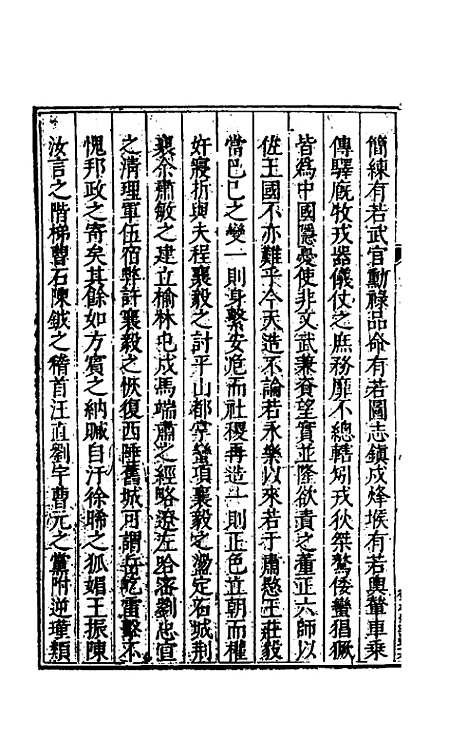 簡練有若武官勳祿品命有若圖志鎮戍烽堠有若輿輦車乘
傳驛廐牧戎器儀仗之庶務靡不總轄矧戎狄桀驁倭蠻猖獗
皆爲中國隱憂使非文武兼資望實並隆欲責之董正六師以
佐王國不亦難乎今天造不論若永樂以來若于肅愍王莊毅
當巳巳之變一則身繫安危而社稷再造一則正色立朝而權
奸寢折與夫程襄毅之討平山都字蠻項襄毅之盪定石城荆
襄余肅敏之建立榆林也戍馬端肅之經略遼左哈密劉忠宣
之清理軍伍宿弊許襄毅之恢復西陲舊城可謂岳屹雷擊不
愧邦政之寄矣其餘如方賓之納賄自汙徐晞之狐媚王振陳
汝言之階梯曹石陳鉞之稽首汪直劉宇曹元之黨附逆瑾類